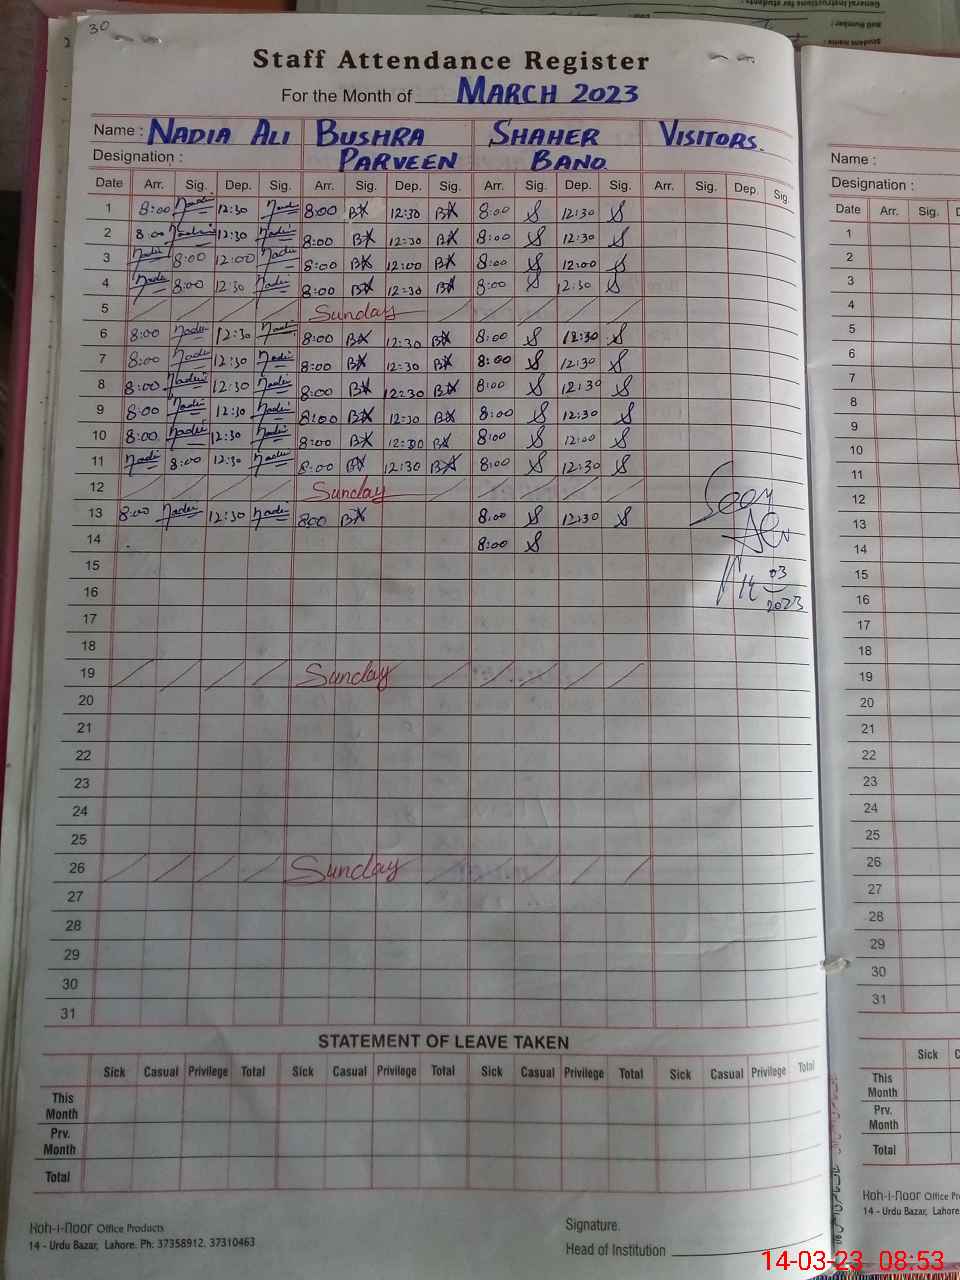 30
Staff Attendance Register
For the Month of MARCH 2023
Name : NADIA ALI BUSHRA PARVEEN SHAHER BANO VISITORS.
Designation :
Date Arr. Sig. Dep. Sig. Arr. Sig. Dep. Sig. Arr. Sig. Dep. Sig. Arr. Sig. Dep. Sig.
1 8:00 Nadia 12:30 Nadia 8:00 12:30 8:00 12:30
2 8:00 Nadia 12:30 Nadia 8:00 12:30 8:00 12:30
3 Nadia 8:00 12:00 Nadia 8:00 12:00 8:00 12:00
4 Nadia 8:00 12:30 Nadia 8:00 12:30 8:00 12:30
5 Sunday
6 8:00 Nadia 12:30 Nadia 8:00 12:30 8:00 12:30
7 8:00 Nadia 12:30 Nadia 8:00 12:30 8:00 12:30
8 8:00 Nadia 12:30 Nadia 8:00 12:30 8:00 12:30
9 8:00 Nadia 12:30 Nadia 8:00 12:30 8:00 12:30
10 8:00 Nadia 12:30 Nadia 8:00 12:30 8:00 12:00
11 Nadia 8:00 12:30 Nadia 8:00 12:30 8:00 12:30
12 Sunday
13 8:00 Nadia 12:30 Nadia 800 8:00 12:30
14 8:00
15
16
17
18
19 Sunday
20
21
22
23
24
25
26 Sunday
27
28
29
30
31
Seen
14 03 2023
STATEMENT OF LEAVE TAKEN
Sick Casual Privilege Total Sick Casual Privilege Total Sick Casual Privilege Total Sick Casual Privilege Total
This Month
Prv. Month
Total
Koh-i-Noor Office Products
14 - Urdu Bazar, Lahore. Ph: 37358912, 37310463
Signature.
Head of Institution
Name :
Designation :
Date Arr. Sig.
1
2
3
4
5
6
7
8
9
10
11
12
13
14
15
16
17
18
19
20
21
22
23
24
25
26
27
28
29
30
31
Sick
This Month
Prv. Month
Total
Koh-i-Noor Office
14 - Urdu Bazar, Lahore.
General Instructions for students :
Roll Number :
Student name :
14-03-23 08:53